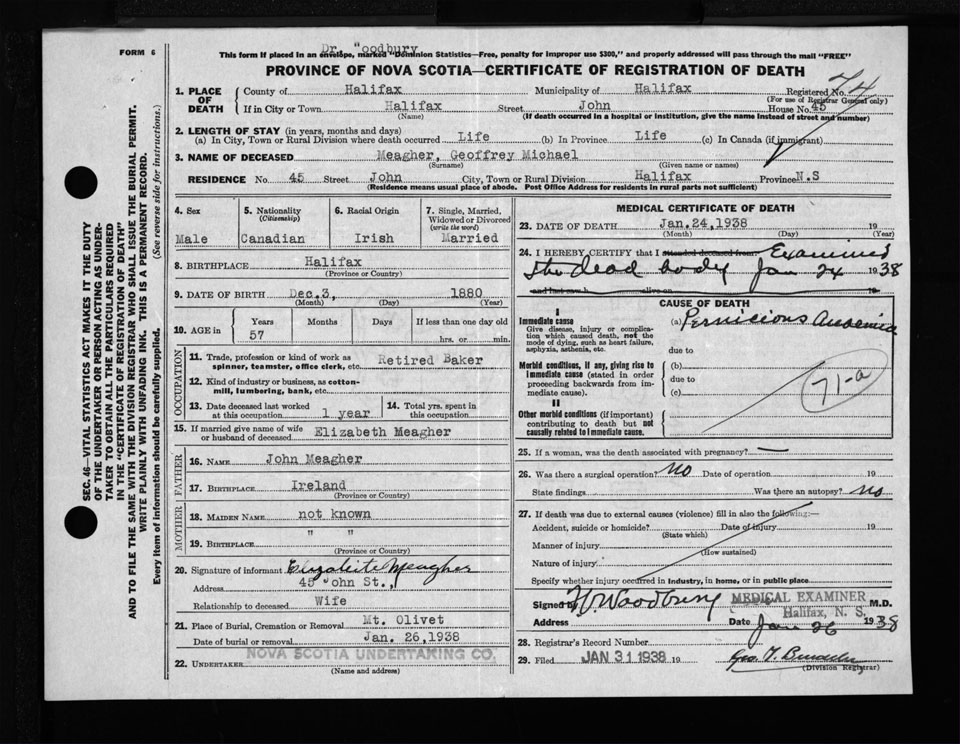 Dr. Woodbury
FORM 6
This form if placed in an envelope, marked "Dominion Statistics—Free, penalty for improper use $300," and properly addressed will pass through the mail "FREE"
PROVINCE OF NOVA SCOTIA—CERTIFICATE OF REGISTRATION OF DEATH
74
1. PLACE OF DEATH
County of Halifax Municipality of Halifax Registered No.
(For use of Registrar General only)
If in City or Town Halifax Street John House No. 45
(Name) (If death occurred in a hospital or institution, give the name instead of street and number)
2. LENGTH OF STAY (in years, months and days)
(a) In City, Town or Rural Division where death occurred Life (b) In Province Life (c) In Canada (if immigrant)
3. NAME OF DECEASED Meagher, Geoffrey Michael
(Surname) (Given name or names)
RESIDENCE No. 45 Street John City, Town or Rural Division Halifax Province N.S
(Residence means usual place of abode. Post Office Address for residents in rural parts not sufficient)
4. Sex
Male
5. Nationality
(Citizenship)
Canadian
6. Racial Origin
Irish
7. Single, Married, Widowed or Divorced
(write the word)
Married
8. BIRTHPLACE Halifax
(Province or Country)
9. DATE OF BIRTH Dec. 3, 1880
(Month) (Day) (Year)
10. AGE in
Years Months Days If less than one day old
57 hrs. or min.
OCCUPATION
11. Trade, profession or kind of work as spinner, teamster, office clerk, etc. Retired Baker
12. Kind of industry or business, as cotton-mill, lumbering, bank, etc.
13. Date deceased last worked at this occupation 1 year
14. Total yrs. spent in this occupation
15. If married give name of wife or husband of deceased Elizabeth Meagher
FATHER
16. NAME John Meagher
17. BIRTHPLACE Ireland
(Province or Country)
MOTHER
18. MAIDEN NAME not known
19. BIRTHPLACE " "
(Province or Country)
20. Signature of informant Elizabeth Meagher
Address 45 John St.,
Relationship to deceased Wife
21. Place of Burial, Cremation or Removal Mt. Olivet
Date of burial or removal Jan. 26, 1938
22. UNDERTAKER NOVA SCOTIA UNDERTAKING CO.
(Name and address)
MEDICAL CERTIFICATE OF DEATH
23. DATE OF DEATH Jan. 24, 1938 19
(Month) (Day) (Year)
24. I HEREBY CERTIFY that I attended deceased from Examined
the dead body Jan 24 1938
and last saw h alive on 19
CAUSE OF DEATH
I
Immediate cause
Give disease, injury or complication which caused death, not the mode of dying, such as heart failure, asphyxia, asthenia, etc.
(a) Pernicious Anaemia
due to
Morbid conditions, if any, giving rise to immediate cause (stated in order proceeding backwards from immediate cause).
(b)
due to
(c)
71-a
II
Other morbid conditions (if important) contributing to death but not causally related to immediate cause.
25. If a woman, was the death associated with pregnancy? —
26. Was there a surgical operation? No Date of operation 19
State findings Was there an autopsy? no
27. If death was due to external causes (violence) fill in also the following:—
Accident, suicide or homicide? Date of injury 19
(State which)
Manner of injury
(How sustained)
Nature of injury
Specify whether injury occurred in industry, in home, or in public place
Signed by H. Woodbury MEDICAL EXAMINER M.D.
Halifax, N. S.
Address Date Jan 26 1938
28. Registrar's Record Number
29. Filed JAN 31 1938 19
(Division Registrar)
SEC. 46—VITAL STATISTICS ACT MAKES IT THE DUTY
OF THE UNDERTAKER OR PERSON ACTING AS UNDER-
TAKER TO OBTAIN ALL THE PARTICULARS REQUIRED
IN THE "CERTIFICATE OF REGISTRATION OF DEATH"
AND TO FILE THE SAME WITH THE DIVISION REGISTRAR WHO SHALL ISSUE THE BURIAL PERMIT.
WRITE PLAINLY WITH UNFADING INK. THIS IS A PERMANENT RECORD.
Every item of information should be carefully supplied. (See reverse side for instructions.)